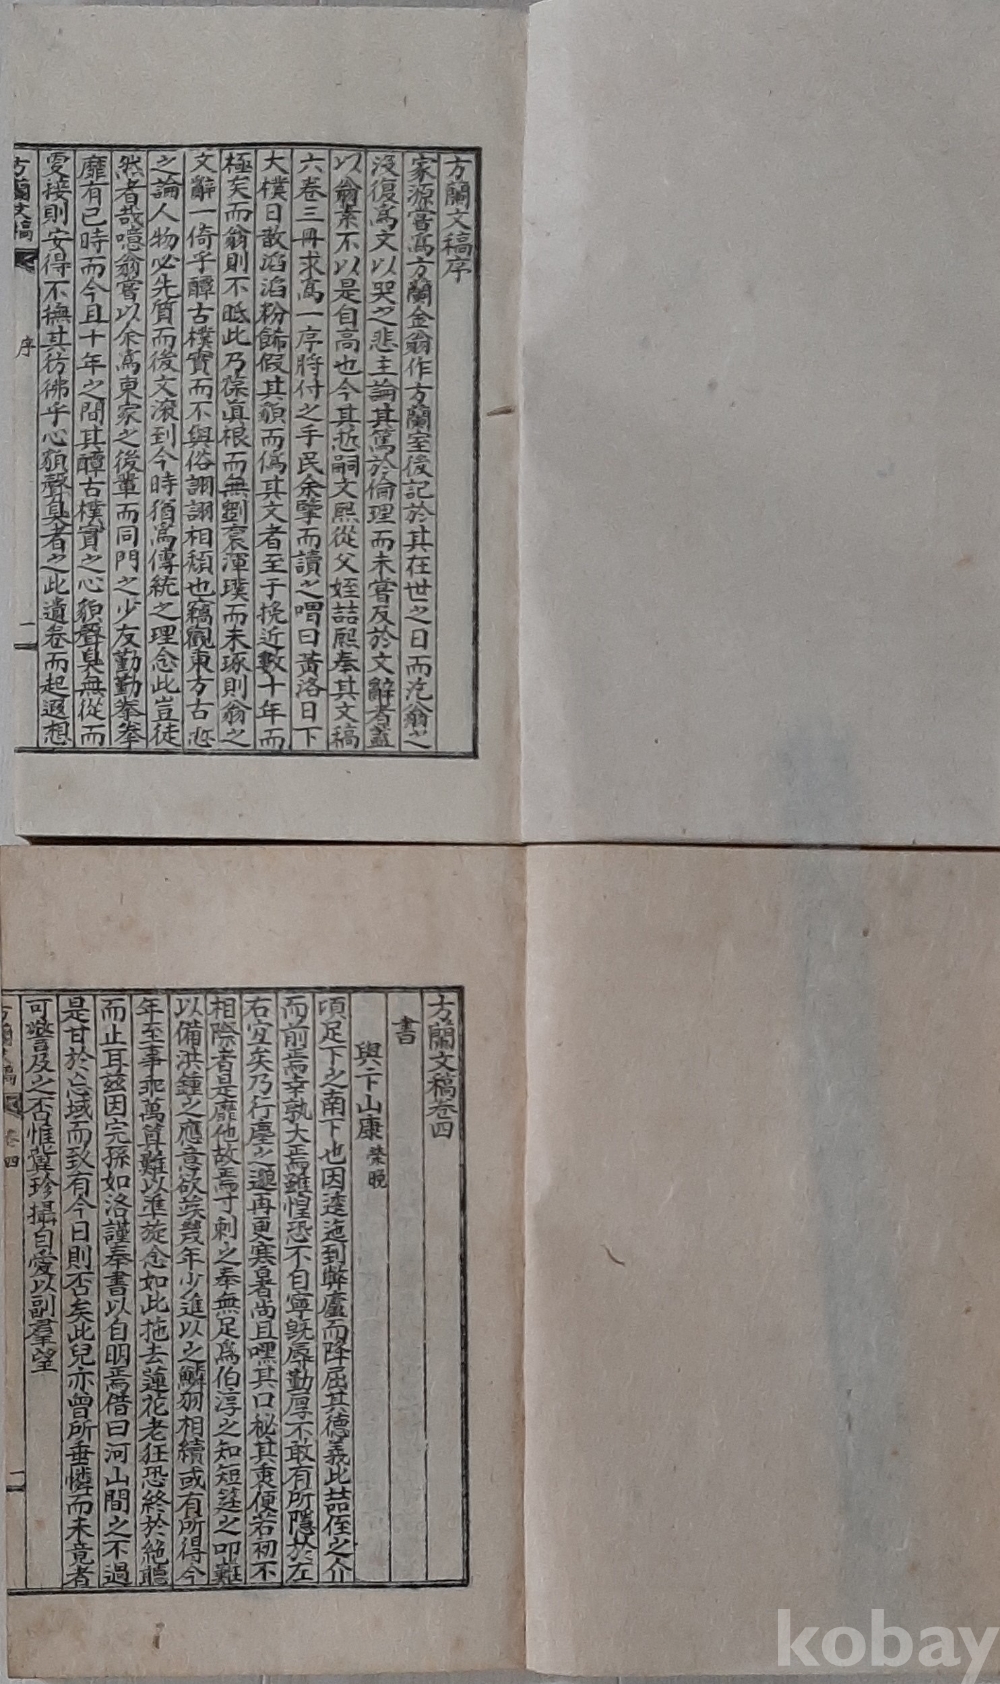 方蘭文稿序
家源嘗爲方蘭金翁作方蘭室後記於其在世之日而汔翁之
沒復爲文以哭之悲主論其篤於倫理而未嘗反於文辭者蓋
以翁素不以是自高也今其嗣文熙從父姪喆熙奉其文稿
六卷三冊求爲一序將付之手民余擎而讀之喟曰黃洛日下
大樸日散滔滔粉餙假其貌而僞其文者至于挽近數十年而
極矣而翁則不眡此乃葆眞根而無劉裒渾璞而未琢則翁之
文辭一倚乎醇古樸實而不與俗詡詡相頹也竊觀東方古
之論人物必先質而後文滚到今時猶爲傳統之理念此豈徒
然者哉噫翁嘗以余爲東家之後輩而同門之少友勤勤拳拳
靡有已時而今且十年之間其醇古樸實之心貌聲臭無從而
更接則安得不撫其彷彿乎心貌聲臭者之此遺卷而起遐想
方蘭文稿 序 二
方蘭文稿卷四
書
與卞山康 榮晩
頃足下之南下也因逶迤到弊廬而降屈其德義比喆侄之介
而前焉幸孰大焉雖惶恐不自寧旣辱勤厚不敢有所隱於左
右宜矣乃行塵之邈再更寒暑尚且嘿其口秘其衷便若初不
相際者是靡他故焉寸刺之奉無足爲伯淳之知短筳之叩難
以備洪鍾之應意欲竢幾年少進以之鱗羽相續或有所得今
年至事乖萬算難以準旋念如此拖去蓮花老狂恐終於絶聽
而止耳玆因完孫如洛謹奉書以自明焉借曰河山間之不過
是甘於忘域而致有今日則否矣此兒亦曾所垂憐而未竟者
可警及之否惟冀珍攝自愛以副羣望
方蘭文稿 卷四 一
kobay